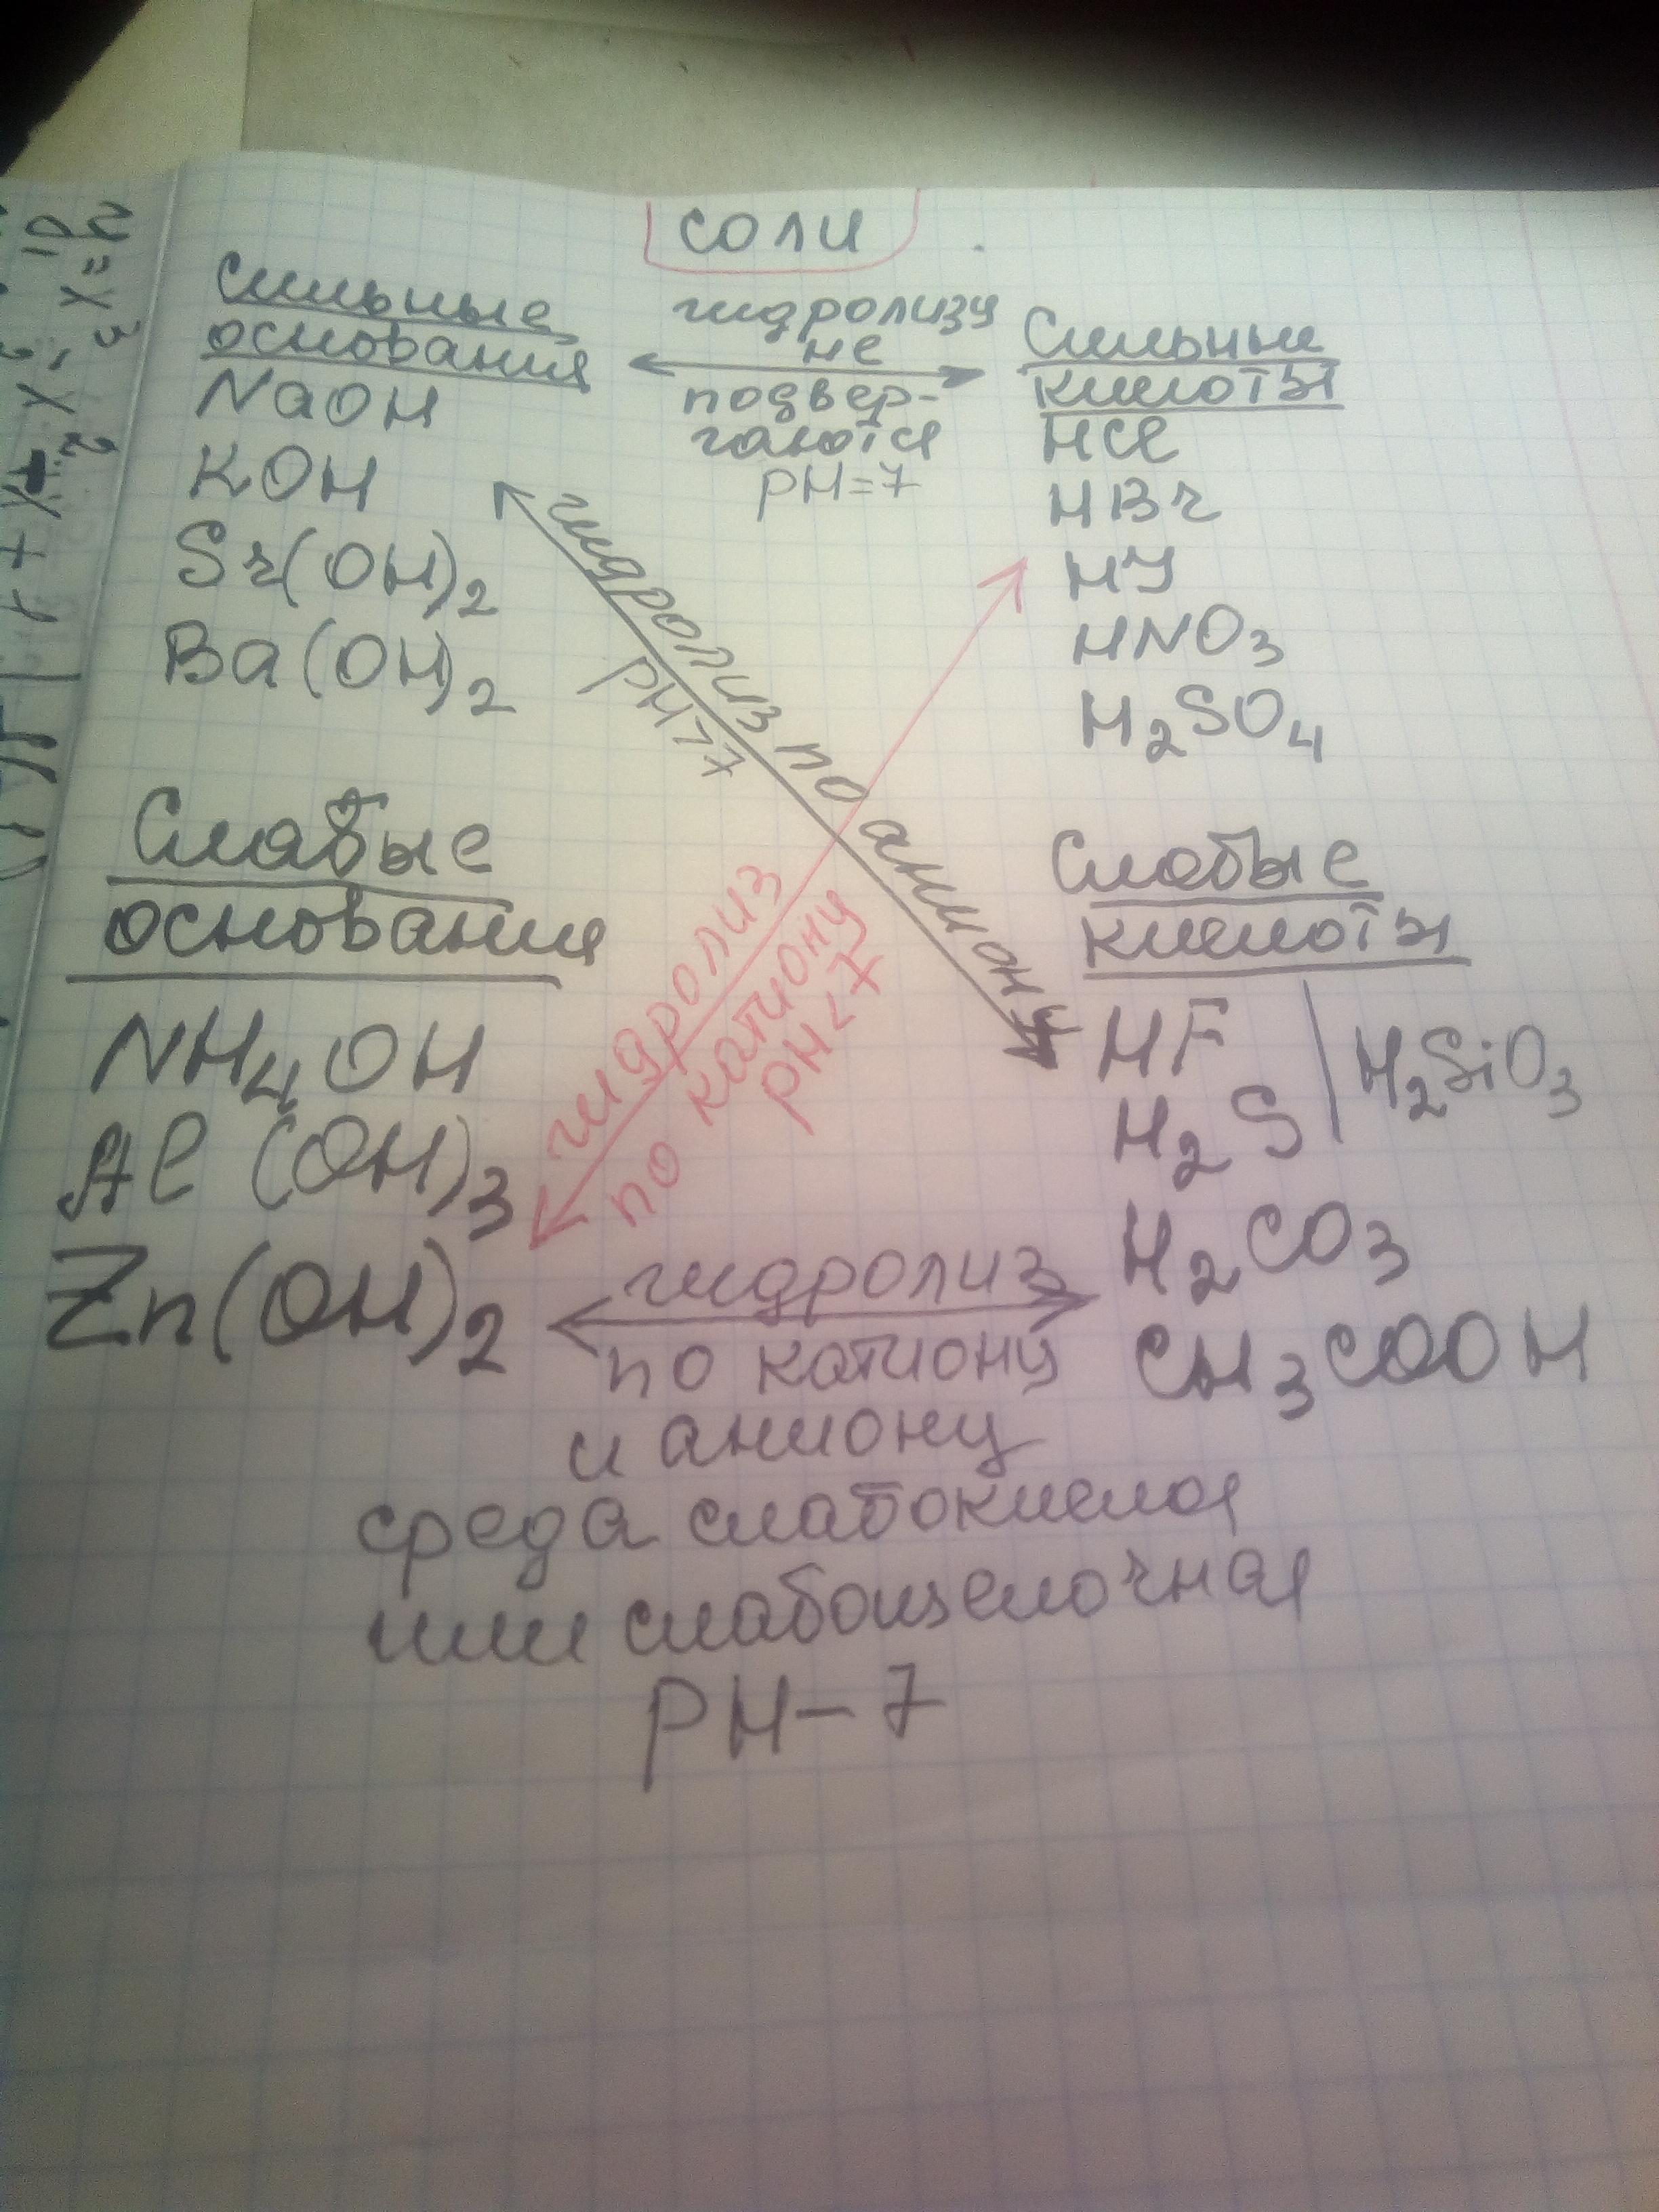 соли
Сильные
основания
NaOH
KOH
Sr(OH)2
Ba(OH)2
гидролизу
не
подвер-
гаются
pH=7
Сильные
кислоты
HCl
HBr
HJ
HNO3
H2SO4
гидролиз по аниону
pH>7
гидролиз
по катиону
pH<7
Слабые
основания
NH4OH
Al(OH)3
Zn(OH)2
Слабые
кислоты
HF | H2SiO3
H2S
H2CO3
CH3COOH
гидролиз
по катиону
и аниону
среда слабокислая
или слабощелочная
PH-7